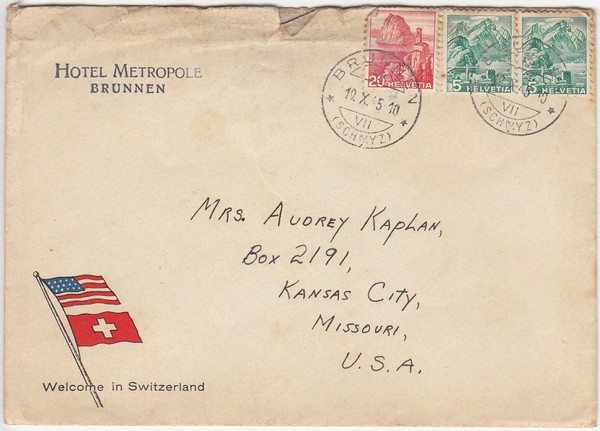 HOTEL METROPOLE
BRUNNEN
20 HELVETIA
5 HELVETIA
5 HELVETIA
BRUNNEN
19.X.45-10
VII
(SCHWYZ)
VII
(SCHWYZ)
MRS. AUDREY KAPLAN,
BOX 2191,
KANSAS CITY,
MISSOURI,
U.S.A.
Welcome in Switzerland